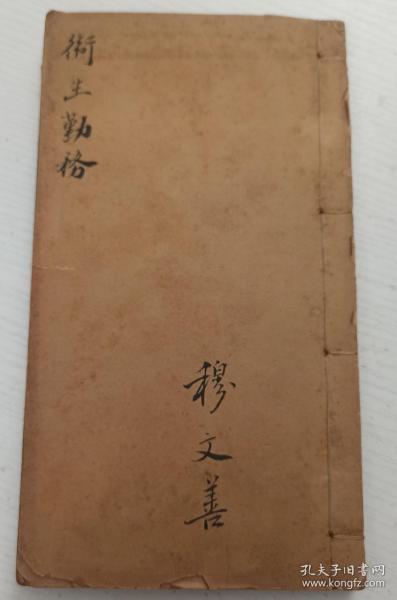 衛生勤務
穆文善
孔夫子旧书网
www.kongfz.com